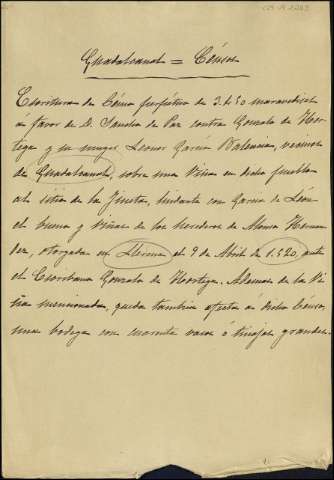 Guadalcanal = Censos
Escritura de Censo perpétuo de 3.450 maravedises
a favor de D. Sancho de Paz contra Gonzalo de Hor
tega y su muger Leonor Garcia Valencia, vecinos
de Guadalcanal, sobre una Viña en dicho pueblo
al sitio de la lindante con Garcia de León
el bueno y viñas de los herederos de Alonso Hernan
dez, otorgada en Llerena el 9 de Abril de 1.520, ante
el Escribano Gonzalo de Hortega. Ademas de la Vi
ña mencionada, queda tambien afecta á dicho Censo,
una bodega con cuarenta vasos ó tinajas grandes.